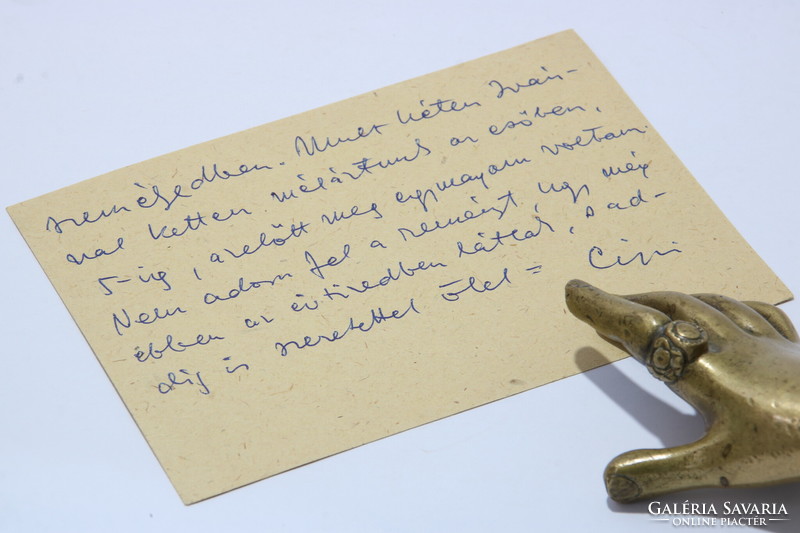 személyedben. Mult héten Iván-
nal ketten méláztunk az esőben,
5-ig, azelőtt meg egymagam voltam.
Nem adom fel a reményt, hogy még
ebben az évtizedben látlak, s ad-
dig is szeretettel ölel =
GALÉRIA SAVARIA
ONLINE PIACTÉR